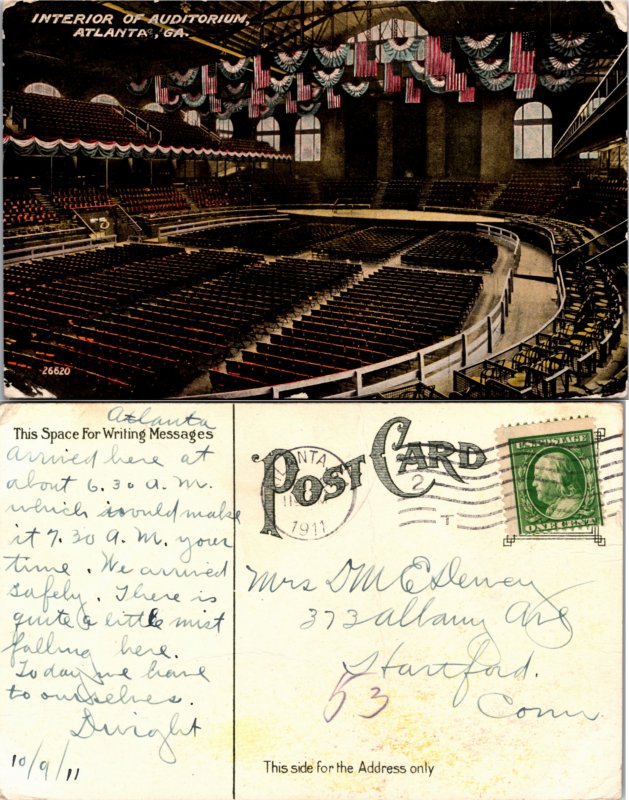 INTERIOR OF AUDITORIUM,
ATLANTA, GA.
75
26620
Atlanta
This Space For Writing Messages
Arrived here at
about 6.30 A.M.
which would make
it 7.30 A.M. your
time. We arrived
safely. There is
quite a little mist
falling here.
Today we have
to ourselves.
Dwight
10/9/11
POST CARD
ANTA
2
1911
T
U.S. POSTAGE
ONE CENT
Mrs D M E Dewey
373 Albany Ave
Hartford.
Conn
53
This side for the Address only